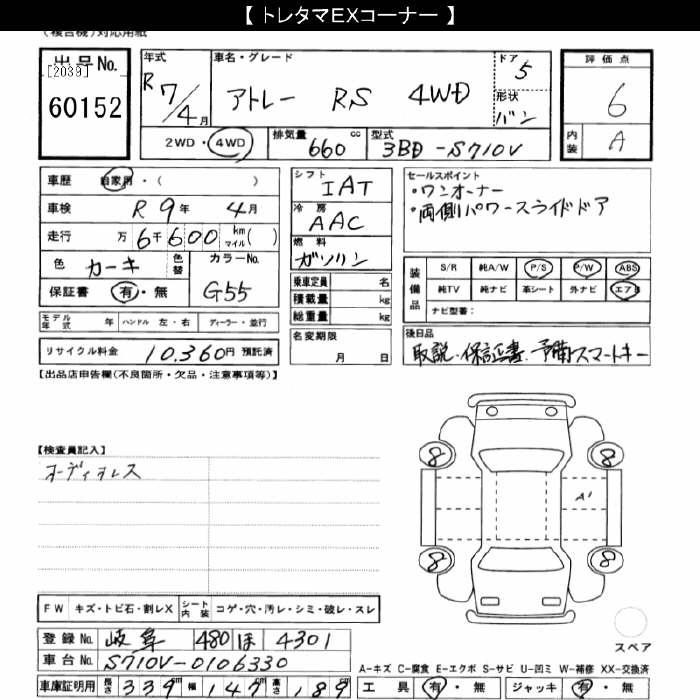 【 トレタマEXコーナー 】
(複合機)対応用紙
出品No.
[2039]
60152
年式 R 7/4月
車名・グレード アトレー RS 4WD
ドア 5
形状 バン
評価点 6
内装 A
2WD・4WD
排気量 660 cc
型式 3BD-S710V
車歴 自家用・( )
車検 R 9年 4月
走行 万 6千600 km マイル ( )
色 カーキ 色替 カラーNo. G55
保証書 有・無
シフト IAT
冷房 AAC
燃料 ガソリン
乗車定員 名
積載量 kg
総重量 kg
セールスポイント
・ワンオーナー
・両側パワースライドドア
装備品 S/R 純A/W P/S P/W ABS
純TV 純ナビ 革シート 外ナビ エアB
ナビ型番:
モデル年式 年 ハンドル 左・右 ディーラー・並行
リサイクル料金 10,360円 預託済
名変期限 月 日
後日品
取説・保証書・予備スマートキー
【出品店申告欄(不良箇所・欠品・注意事項等)】
【検査員記入】
オーディオレス
8 8
A1
8 8
FW キズ・トビ石・割レX シート内装 コゲ・穴・汚レ・シミ・破レ・スレ
スペア
登録No. 岐阜 480 ほ 4301
車台No. S710V-0106330
A-キズ C-腐食 E-エクボ S-サビ U-凹ミ W-補修 XX-交換済
車庫証明用 長さ 339cm 幅 147cm 高さ 189cm
工具 有・無 ジャッキ 有・無